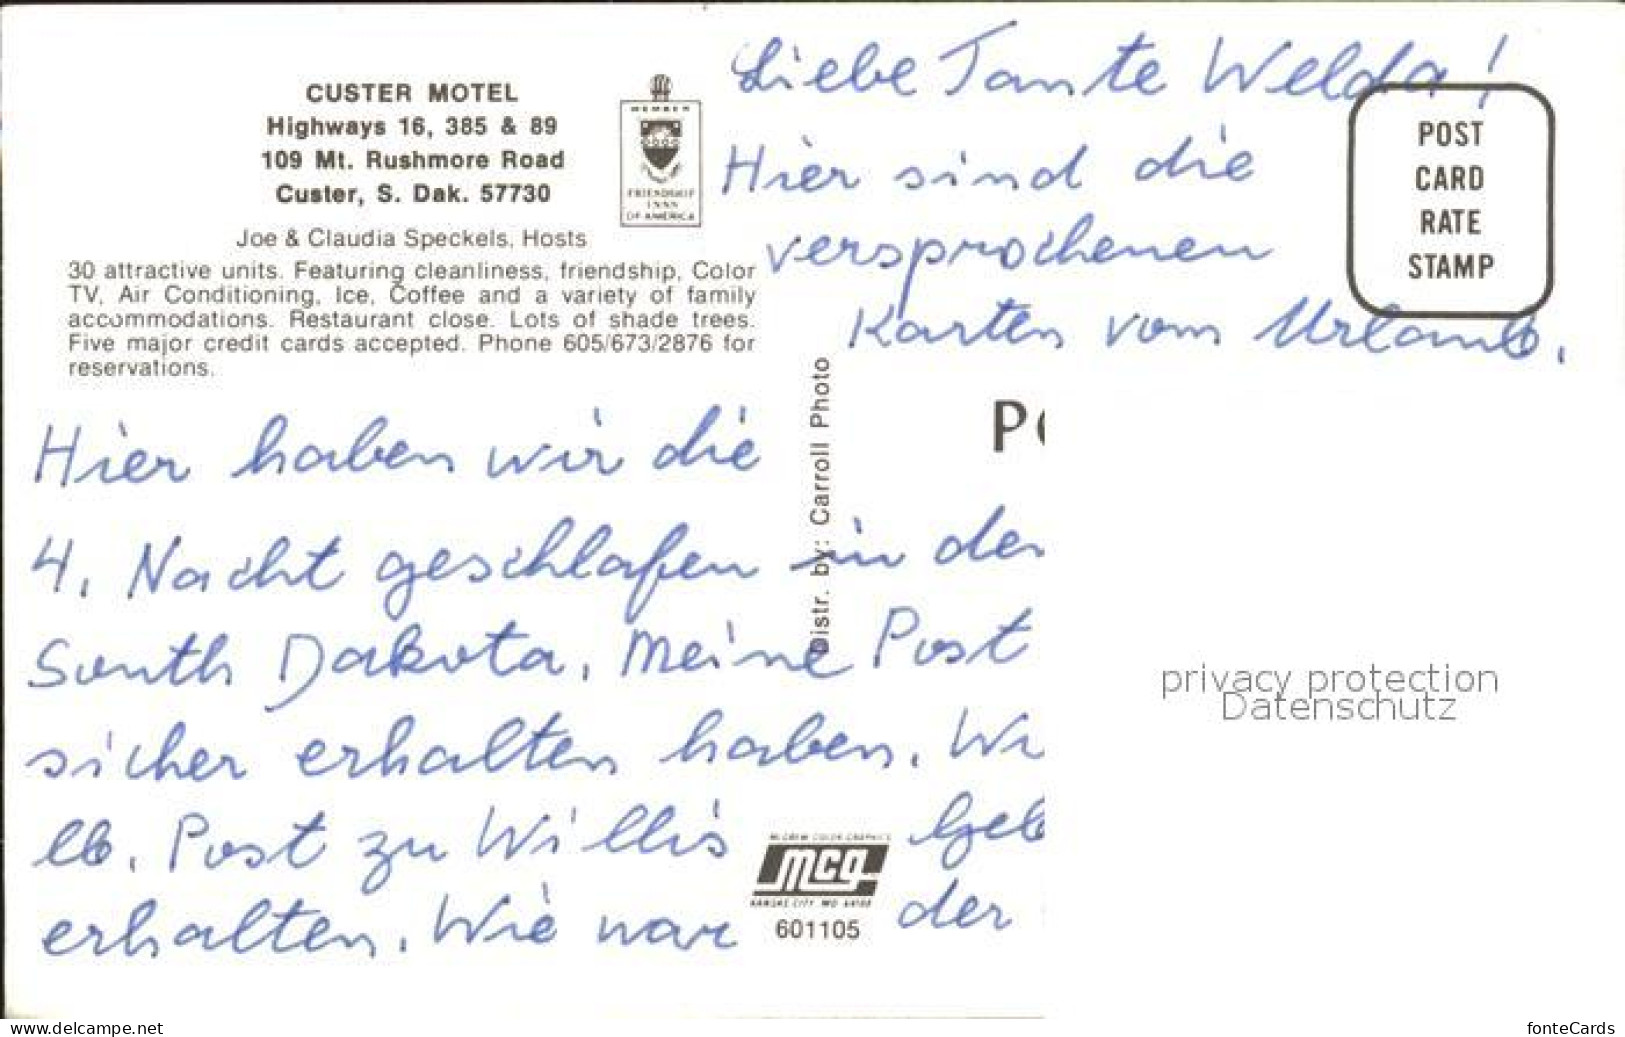 CUSTER MOTEL
Highways 16, 385 & 89
109 Mt. Rushmore Road
Custer, S. Dak. 57730
Joe & Claudia Speckels, Hosts
30 attractive units. Featuring cleanliness, friendship, Color
TV, Air Conditioning, Ice, Coffee and a variety of family
accommodations. Restaurant close. Lots of shade trees.
Five major credit cards accepted. Phone 605/673/2876 for
reservations.
MEMBER
FRIENDSHIP
INNS
OF AMERICA
Liebe Tante Welda!
Hier sind die
versprochenen
Karten vom Urlaub.
POST
CARD
RATE
STAMP
Distr. by: Carroll Photo
PO
Hier haben wir die
4. Nacht geschlafen in der
South Dakota, Meine Post
sicher erhalten haben. Wi
lb. Post zu Willis Geb
erhalten. Wie war der
McGREW COLOR GRAPHICS
mcg
KANSAS CITY MO 64108
601105
privacy protection
Datenschutz
www.delcampe.net
fonteCards